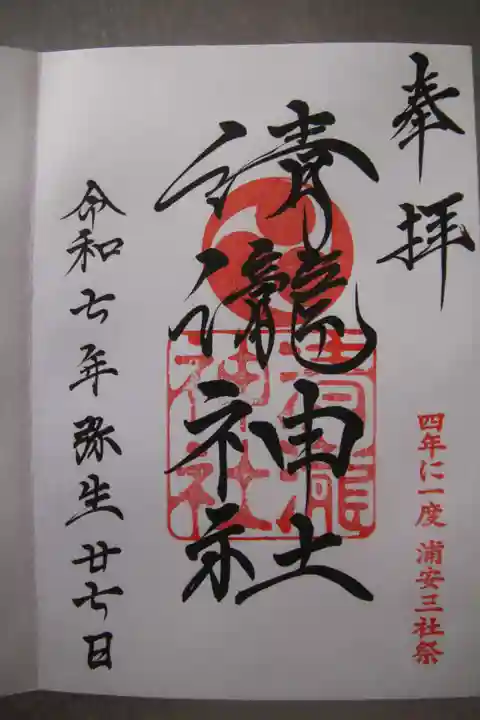 奉拝
四年に一度 浦安三社祭
清瀧神社
清瀧神社
令和七年弥生廿七日